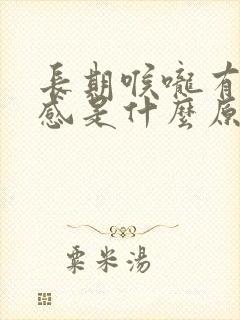 長期喉嚨有
感是什麼原
粟米湯